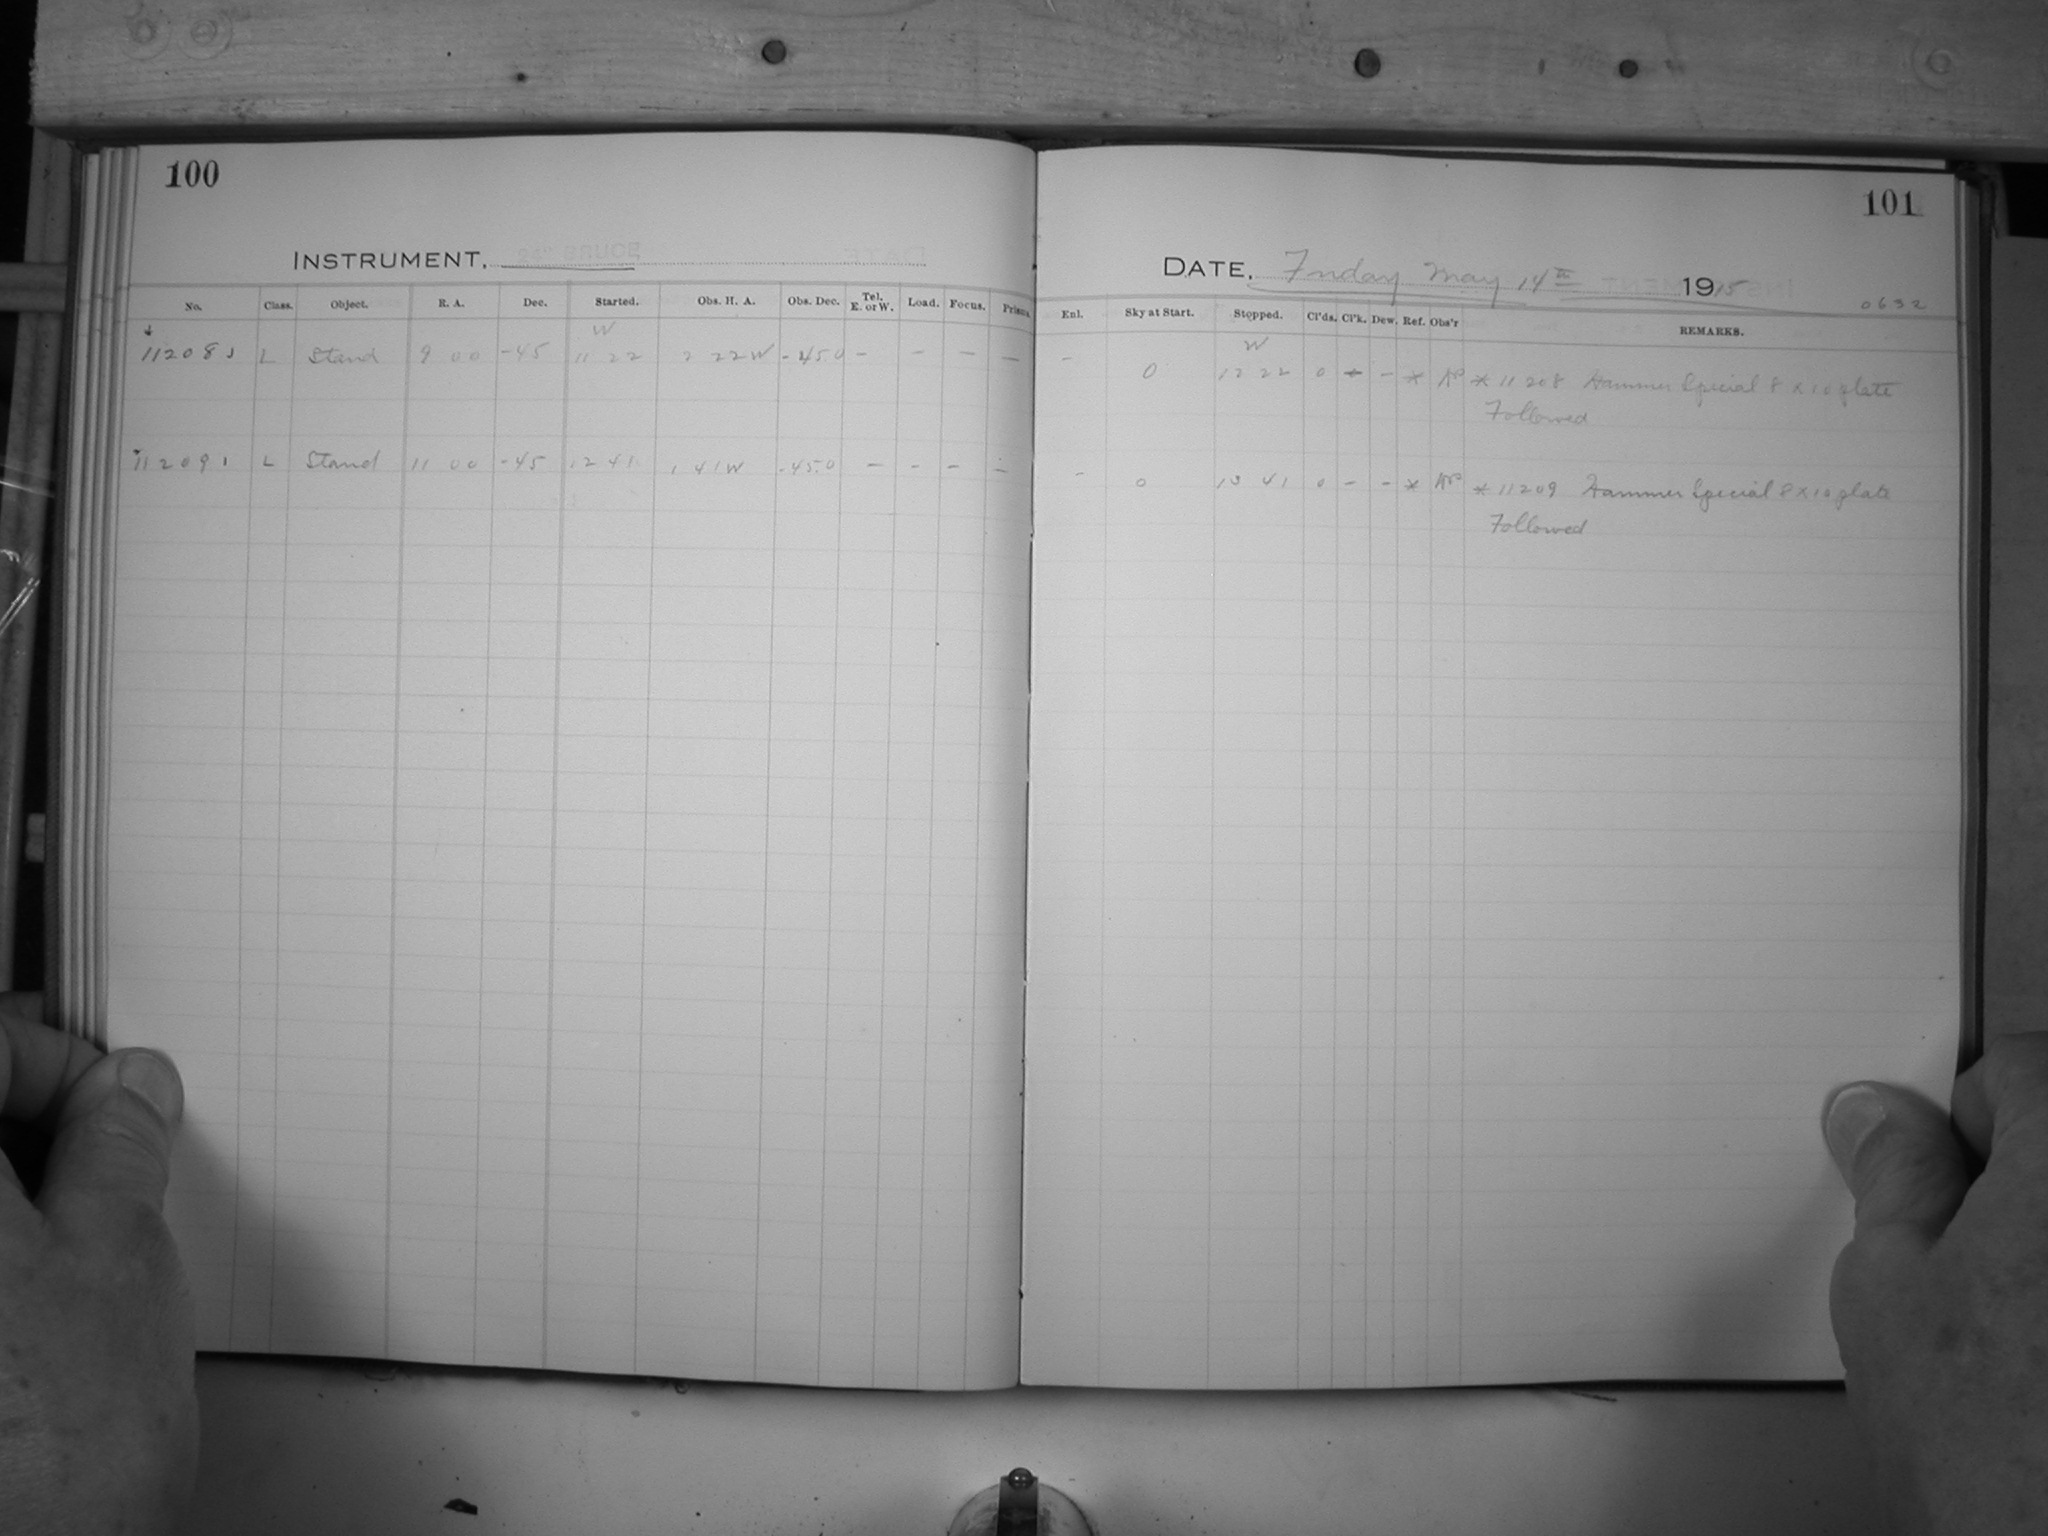 100
INSTRUMENT.
No. Class. Object. R. A. Dec. Started. Obs. H. A. Obs. Dec. Tel. E. or W. Load. Focus. Prisms.
W
11208 L Stand 9 00 -45 11 22 2 22 W -45.0 - - - -
11209 L Stand 11 00 -45 12 41 1 41 W -45.0 - - - -
101
DATE. Friday May 14th 1915
0632
Enl. Sky at Start. Stopped. Cl'ds. Cl'k. Dew. Ref. Obs'r REMARKS.
W
- 0 12 22 0 - - * * 11208 Hammer Special 8 x 10 plate
Followed
- 0 13 41 0 - - * * 11209 Hammer Special 8 x 10 plate
Followed